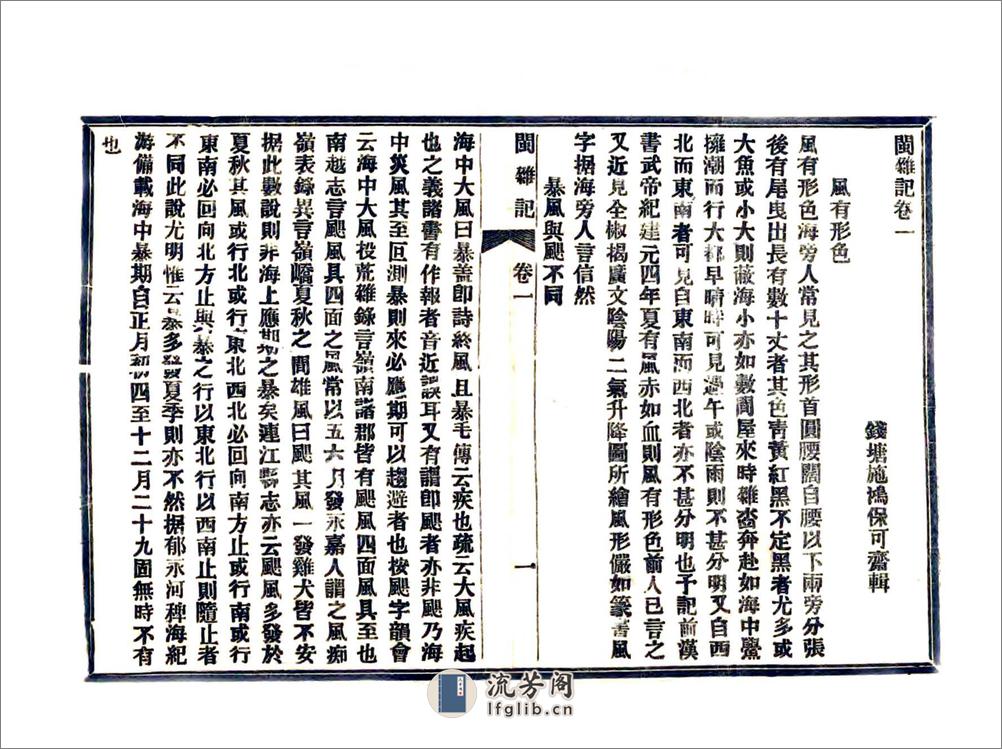 閩雜記卷一
錢塘施鴻保可齋輯
風有形色
風有形色海旁人常見之其形首圓腰闊自腰以下兩旁分張
後有尾曳出長有數十丈者其色靑黃紅黑不定黑者尤多或
大魚或小大則蔽海小亦如數間屋來時雜沓奔赴如海中鱟
擁潮而行大都早晴時可見過午或陰雨則不甚分明又自西
北而東南者可見自東南而西北者亦不甚分明也予記前漢
書武帝紀建元四年夏有風赤如血則風有形色前人已言之
又近見全椒揭廣文陰陽二氣升降圖所繪風形儼如篆書風
字据海旁人言信然
暴風與颶不同
閩雜記
卷一
一
海中大風曰暴蓋卽詩終風且暴毛傳云疾也疏云大風疾起
也之義諸書有作報者音近誤耳又有謂卽颶者亦非颶乃海
中災風其至叵測暴則來必應期可以趨避者也按颶字韻會
云海中大風投荒雜錄言嶺南諸郡皆有颶風四面風具至也
南越志言颶風具四面之風常以五六月發永嘉人謂之風痴
嶺表錄異言嶺嶠夏秋之間雄風曰颶其風一發雞犬皆不安
据此數說則非海上應期之暴矣連江縣志亦云颶風多發於
夏秋其風或行北或行東北西北必回向南方止或行南或行
東南必回向北方止與暴之行以東北行以西南止則隨止者
不同此說尤明惟云暴多發夏季則亦不然据郁永河稗海紀
游備載海中暴期自正月初四至十二月二十九固無時不有
也
流芳阁
lfglib.cn